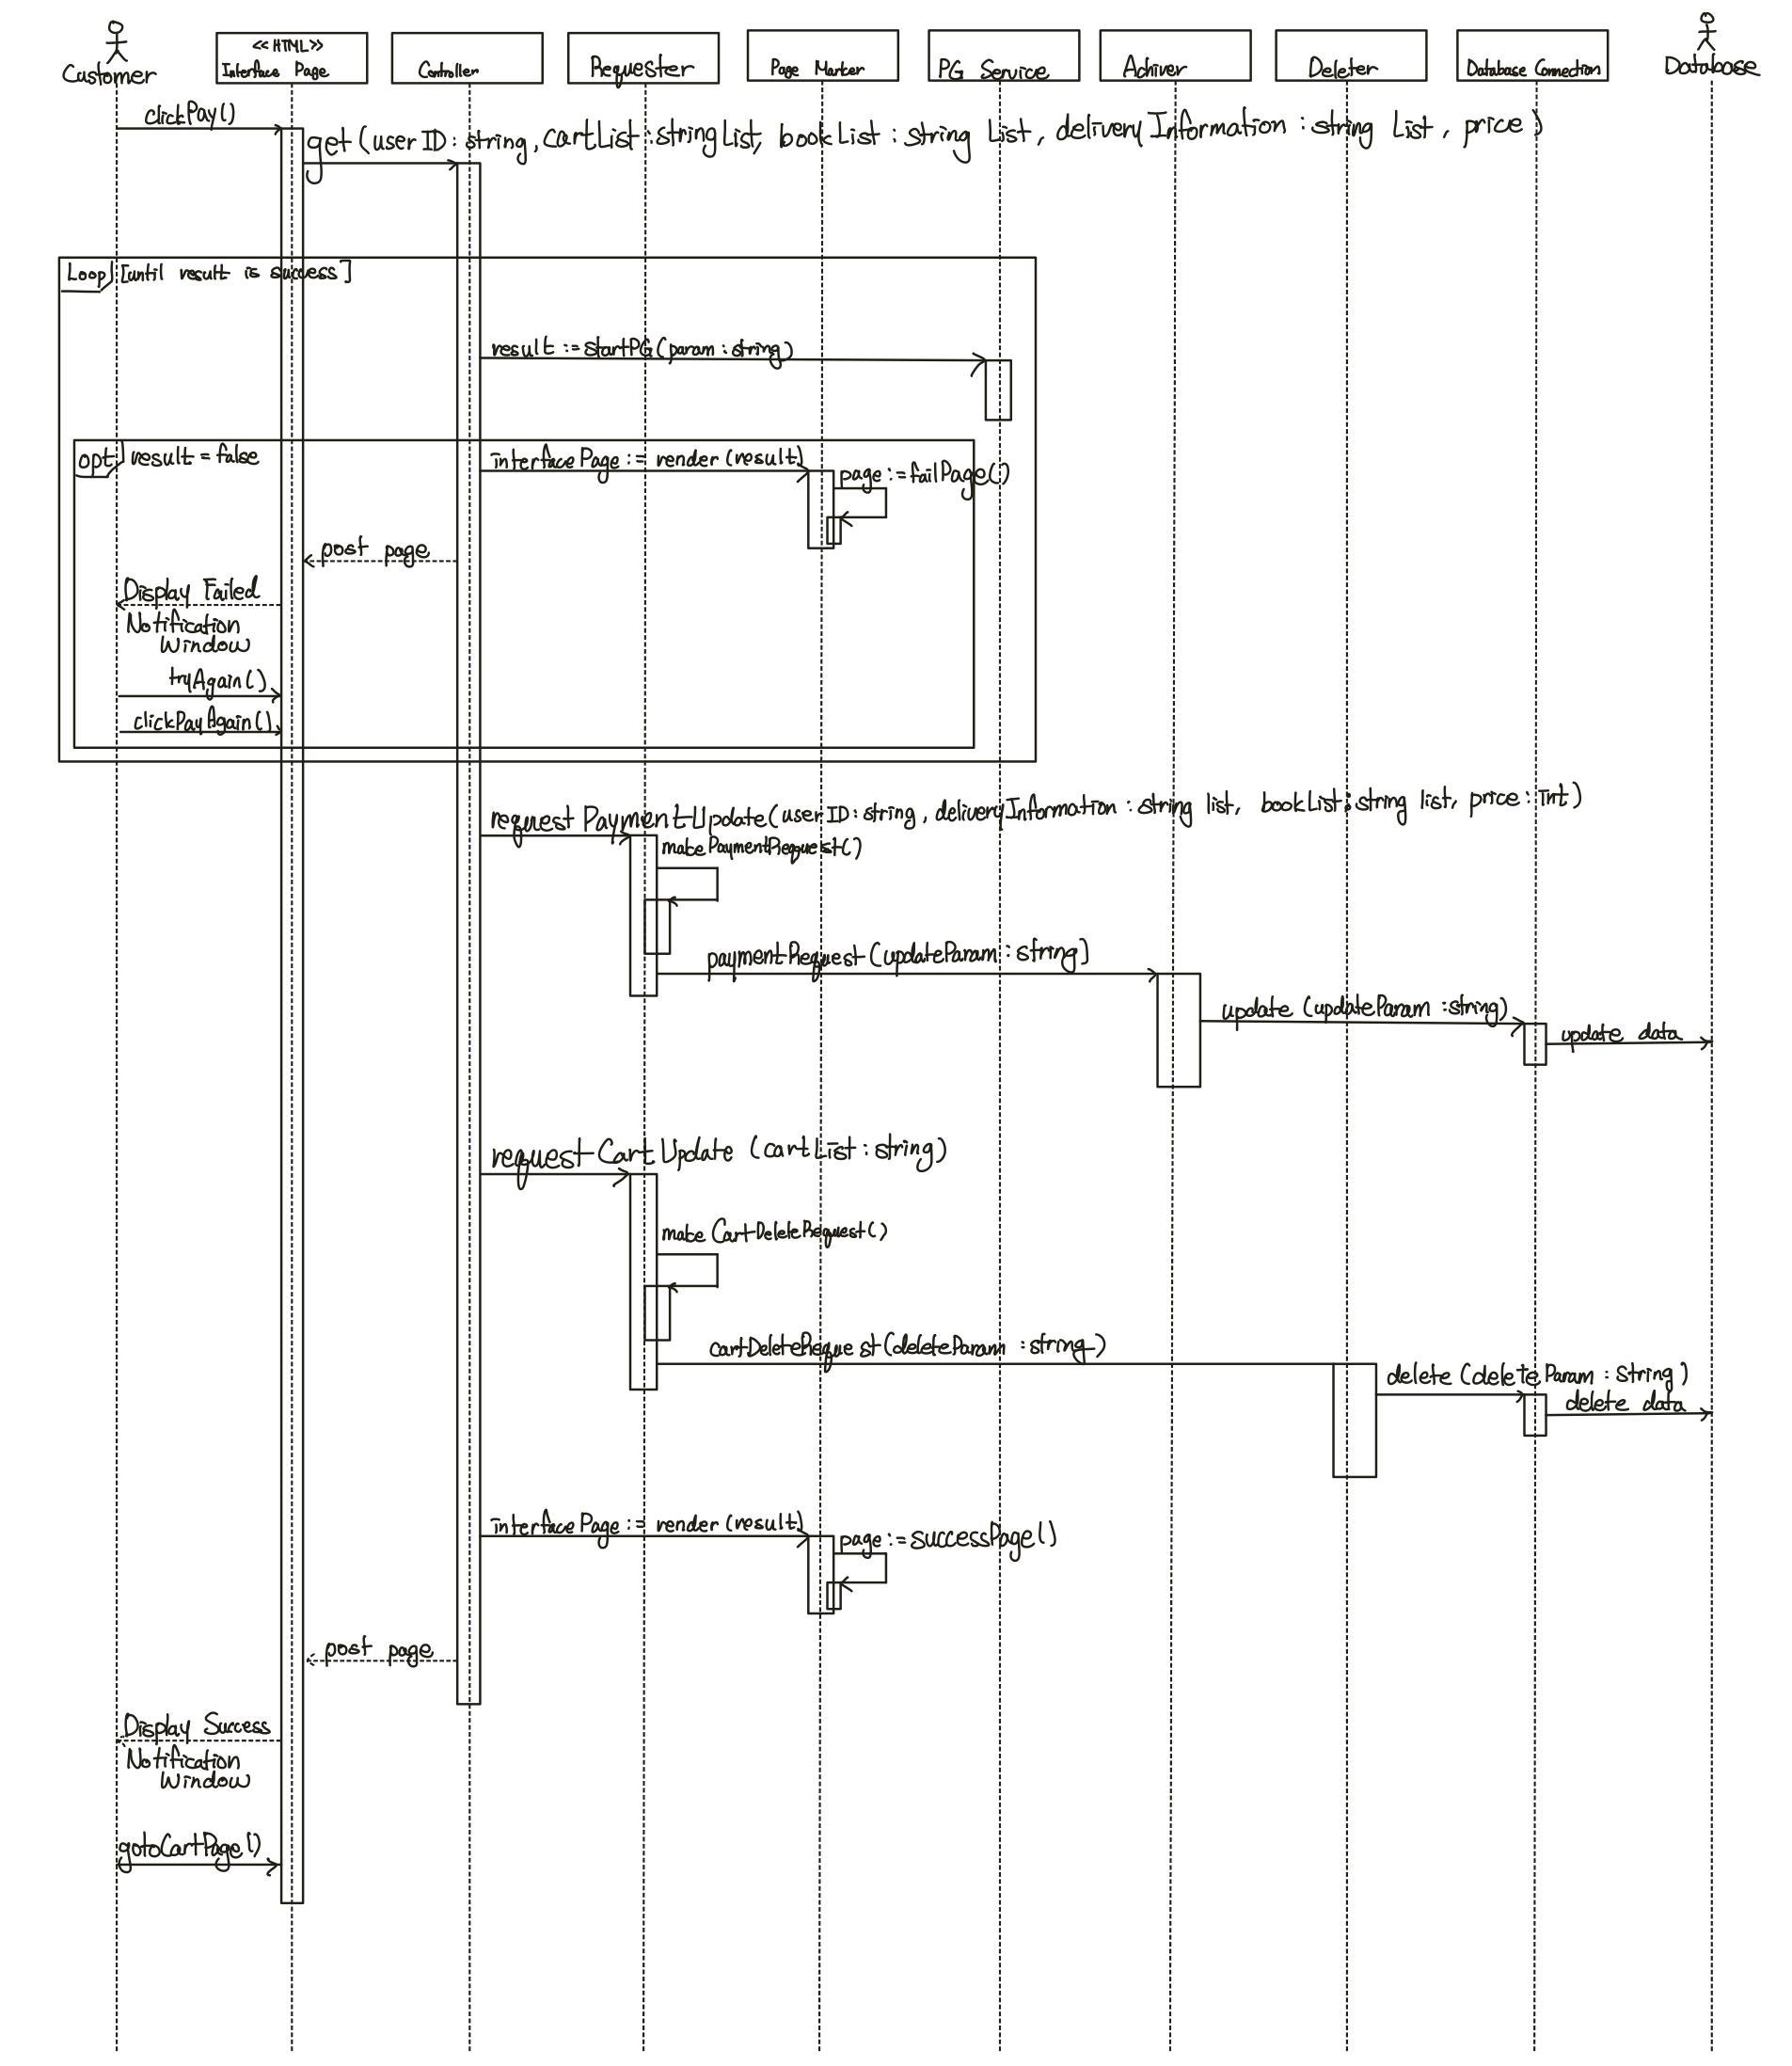 Customer
<< HTML >>
Interface Page
Controller
Requester
Page Marker
PG Service
Achiver
Deleter
Database Connection
Database
clickPay()
get (user ID : string, cartList : string List, book List : string List, delivery Information : string List, price)
Loop [until result is success]
result := startPG (param : string)
opt result = false
interface Page := render (result)
page := failPage()
post page
Display Failed
Notification
Window
tryAgain()
clickPayAgain()
request PaymentUpdate (user ID : string, delivery Information : string list, bookList : string list, price : Int)
make PaymentRequest()
paymentRequest (updateParam : string)
update (updateParam : string)
update data
request Cart Update (cart List : string)
make CartDeleteRequest()
cartDeleteRequest (deleteParam : string)
delete (delete Param : String)
delete data
interface Page := render (result)
page := successPage()
post page
Display Success
Notification
Window
gotoCartPage()